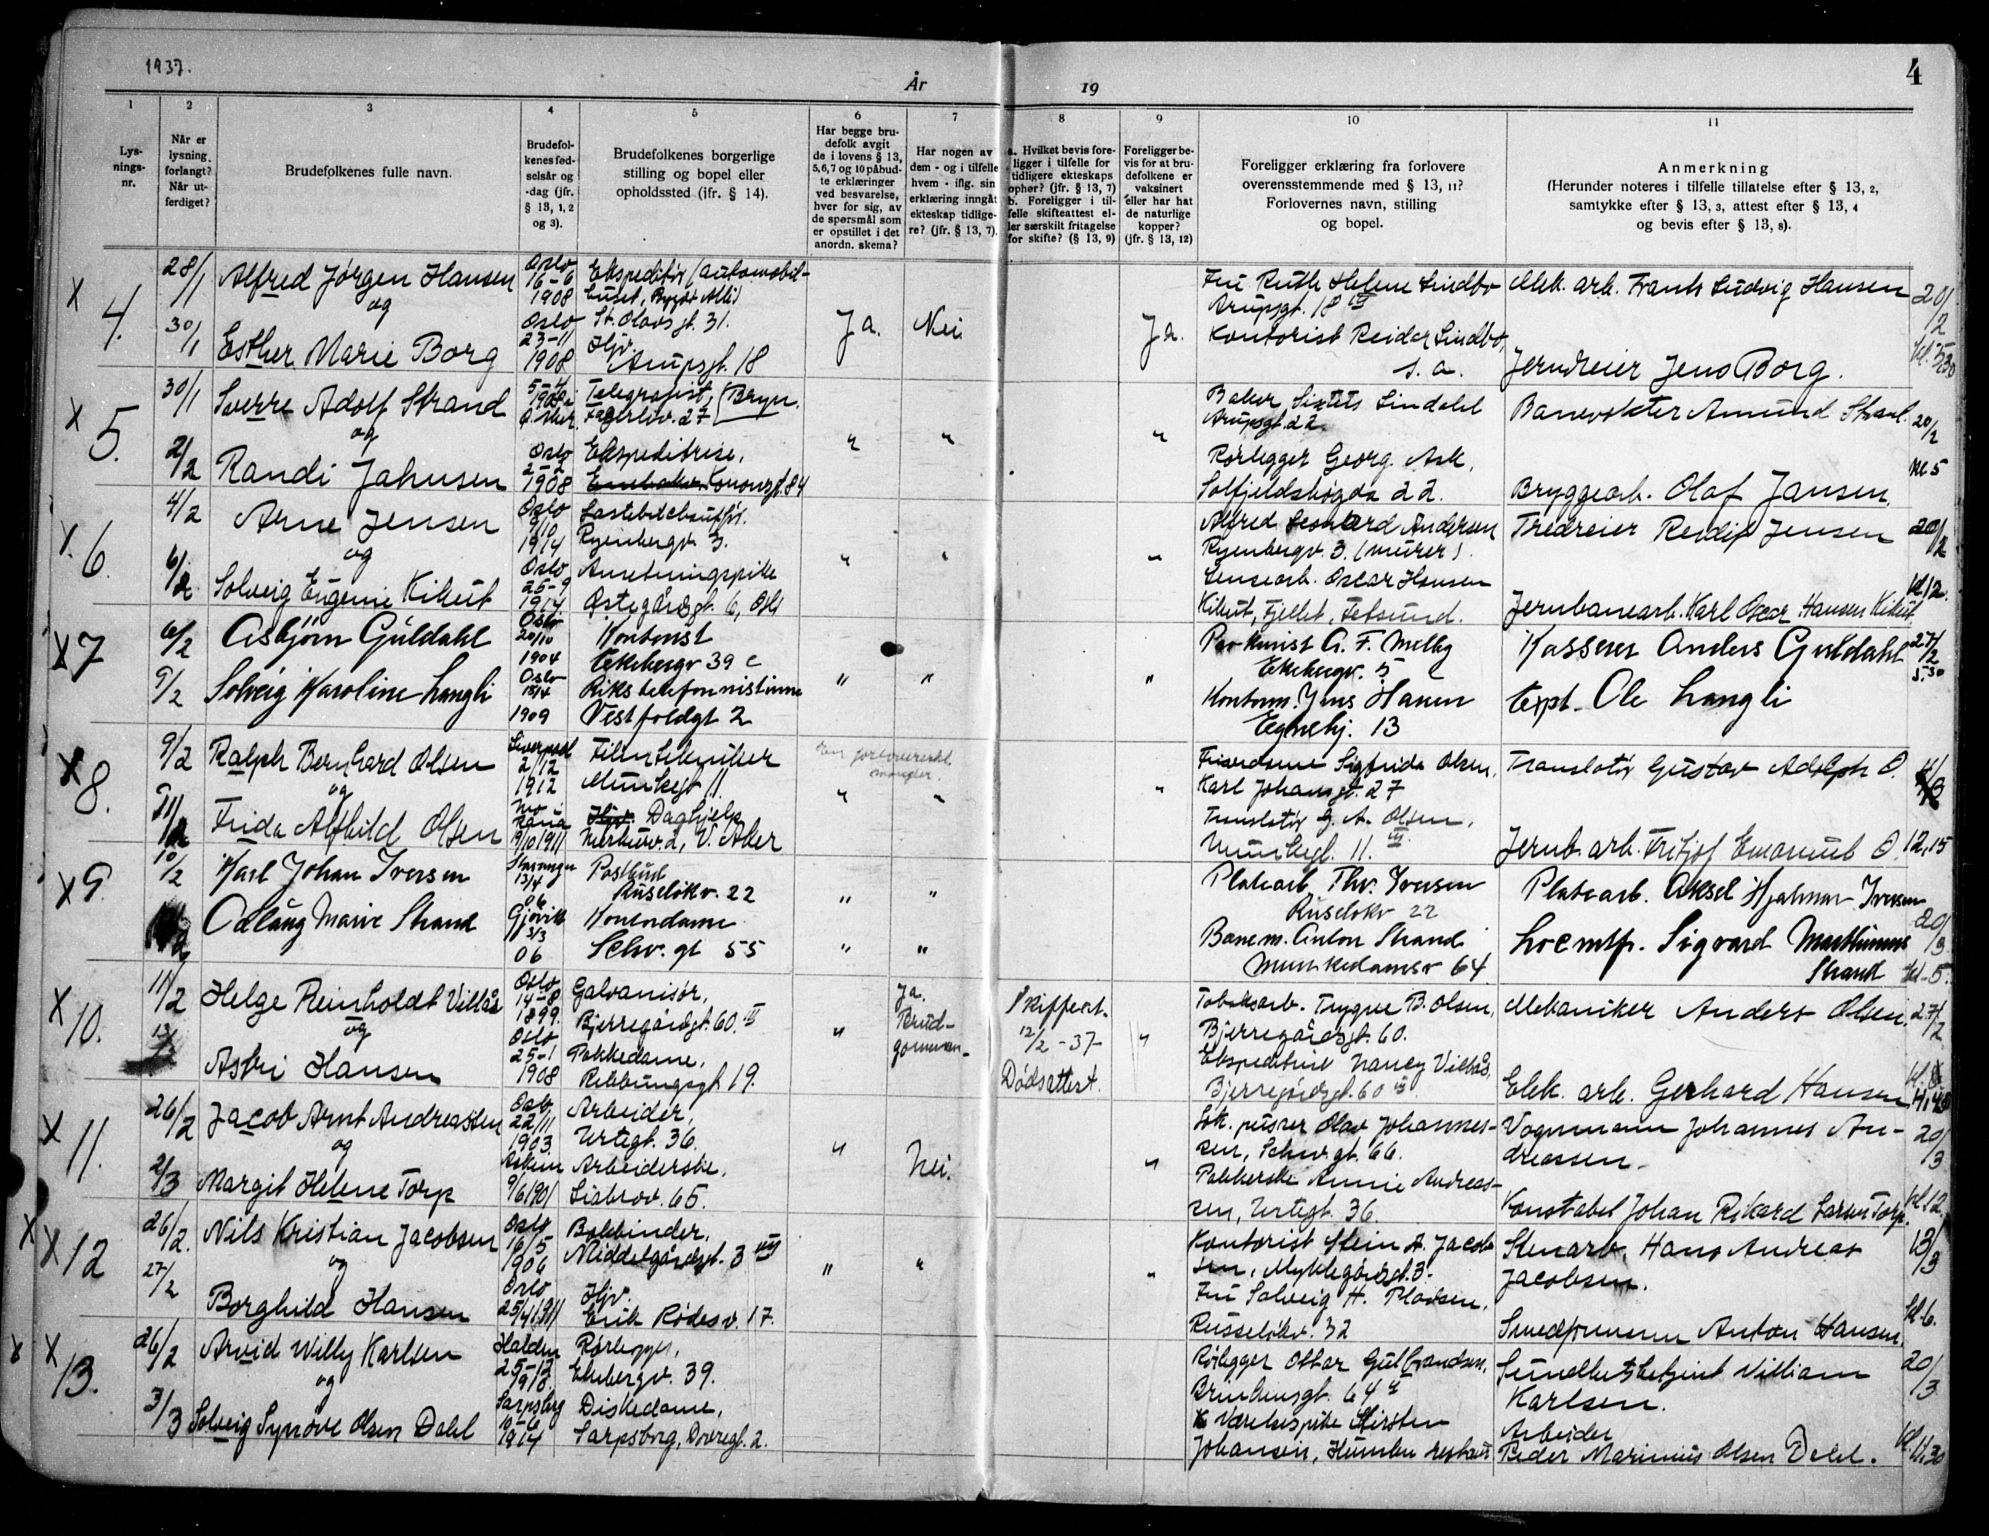 1937.
År
19
4
1
2
3
4
5
6
7
8
9
10
11
Lys-
nings-
nr.
Når er
lysning
forlangt?
Når ut-
ferdiget?
Brudefolkenes fulle navn.
Brudefol-
kenes fød-
selsår og
-dag (jfr.
§ 13, 1, 2
og 3).
Brudefolkenes borgerlige
stilling og bopel eller
opholdssted (jfr. § 14).
Har begge bru-
defolk avgit
de i lovens § 13,
5, 6, 7 og 10 påbud-
te erklæringer
ved besvarelse,
hver for sig, av
de spørsmål som
er opstillet i det
anordn. skema?
Har nogen av
dem - og i tilfelle
hvem - iflg. sin
erklæring inngåt
ekteskap tidlige-
re? (jfr. § 13, 7).
a. Hvilket bevis fore-
ligger i tilfelle for
tidligere ekteskaps
ophør? (jfr. § 13, 7)
b. Foreligger i til-
felle skifteattest el-
ler særskilt fritagelse
for skifte? (§ 13, 9)
Foreligger be-
vis for at bru-
defolkene er
vaksinert
eller har hat
de naturlige
kopper?
(jfr. § 13, 12)
Foreligger erklæring fra forlovere
overensstemmende med § 13, 11?
Forlovernes navn, stilling
og bopel.
Anmerkning
(Herunder noteres i tilfelle tillatelse efter § 13, 2,
samtykke efter § 13, 3, attest efter § 13, 4
og bevis efter § 13, 8).
x 4. 28/1 Alfred Jørgen Hansen Oslo 16-6 1908 Ekspeditør (automobil-
St. Olavs gt. 31. Ja. Nei Ja. Fru Ruth Helene Lindbo Arupsgt. 18 III Mek. arb. Frants Ludvig Hansen 20/2
og
30/1 Esther Marie Borg Oslo 23-11 1908 Hjv. Arupsgt. 18 Kontorist Reidar Lindbo, s. a. Jerndreier Jens Borg. kl. 5.30
x 5. 30/1 Sverre Adolf Strand 5-4 1908 i Ø. Aker Telegrafist, Fagerlav. 27 (Bryn. " " " Baker Lindahl Arupsgt. 22 Banevokter Amund Strand. 20/2
og
2/2 Randi Jahnsen Oslo 2-2 1908 Ekspeditrise, Conowsgt. 84 Rørlegger Georg Ask, Solfjeldshøgda 22. Bryggearb. Olaf Jansen. kl 5
x. 6. 4/2 Arne Jensen Oslo 9/10 1914 Lastebilchauffør. Ryenbergv. 3. " " " Alfred Leonard Andersen Ryenbergv. 3. (murer). Tredreier Reidif Jensen 20/2
og
6/2 Solveig Eugenie Kikut Oslo 25-9 1914 Anretningspike Østegårdsgt. 6, Oslo Lensearb. Oscar Hansen Kikut, Fjellet, Fetsund. Jernbanearb. Karl Oscar Hansen Kikut kl 12.
x 7 6/2 Asbjørn Guldahl Oslo 20/10 1904 Kontorist Ekebergv 39 c " " " A. F. Melby Ekebergv. 5 Kasserer Anders Guldahl 27/2
9/2 Solveig Karoline Langli Oslo 18/4 1909 Rikstelefonnistinne Vestfoldgt 2 Kontorm. Jens Hansen Egnehj. 13 Expt. Ole Langli 5.30
x 8. 9/2 Ralph Bernhard Olsen Liverpool 2/12 1912 Filmtekniker Munkegt 11. En forlovererkl. mangler. " " " Frisørdame Sigfrida Olsen, Karl Johansgt. 27 Translatør Gustav Adolph O.
og
11/2 Frida Alfhild Olsen Mo i Rana 19/10 1911 Hjv. Daghjelp V. Aker Translatør G. A. Olsen, Munkegt. 11. III Jernb. arb. Fritjof Emanuel O. 12,15
x 9. 10/2 Karl Johan Iversen Stavanger 13/4 06 Postbud Ruseløkv. 22 " " Platearb. Thv. Iversen Ruseløkv 22 Platearb. Aksel Hjalmar Iversen
Odlaug Marie Strand Gjøvik 3/3 06 Kontordame Schv. gt 55 " " Banem. Anton Strand Munkedamsv 64 Locomtf. Sigvard Marthinius Strand 20/3 kl. 5.
x 10. 11/2 Helge Reinholdt Villås Oslo 14-8 1899. Galvanisør, Bjerregårdsgt. 60. III " Ja. Brud-
gommen- Skifteatt. 12/2 -37- Dødsattest. " Tobaksarb. Trygve B. Olsen, Bjerregårdsgt. 60. Mekaniker Anders Olsen. 27/2
og
13/2 Astri Hansen Oslo 25-1 1908 Pakkedame, Ribbungsgt. 19. Ekspeditrise Nancy Villås, Bjerregårdsgt. 60 III. Elek. arb. Gerhard Hansen
x 11. 26/2 Jacob Arnt Andreassen Oslo 22/11 1903. Arbeider, Urtegt. 36. " Nei. " Lok. pusser Olav Johannes-
sen, Schv. gt. 66. Vognmann Johannes An-
dreassen. 20/3
og
2/3 Margit Helene Torp Askim 9/6 1901 Arbeiderske, Liabrov. 65. Pakkerske Annie Andreas-
sen, Urtegt. 36. Konstabel Johan Rikard Larsen Torp. kl 12.
x x 12 26/2. Nils Kristian Jacobsen Oslo 16/5 1906 Bokbinder, Middelgårdsgt. 3 III " " " Kontorist Stein A. Jacob-
sen, Myklegårdsgt. 3. Stenarb. Hans Andreas Jacobsen. 13/3
og
27/2 Borghild Hansen Oslo 25/4 1911 Hjv. Erik Rødesv. 17. Fru Solveig H. Madsen, Russeløkv. 32 Anton Hansen. kl. 6.
x x 13. 26/2 Arvid Willy Karlsen Halden 25-12 1910 Rørlegger, Ekebergv. 39. Rørlegger Ottar Gulbrandsen, 64 Villiam Karlsen. 20/3
og
3/3 Solveig Synøve Olsen Dahl Sarpsborg 10-6 1914 Diskedame, Sarpsborg, Dovregt. 2. Værelsespike Kirsten Johansen, Arbeider Peder Marinius Olsen Dahl. kl. 11.30